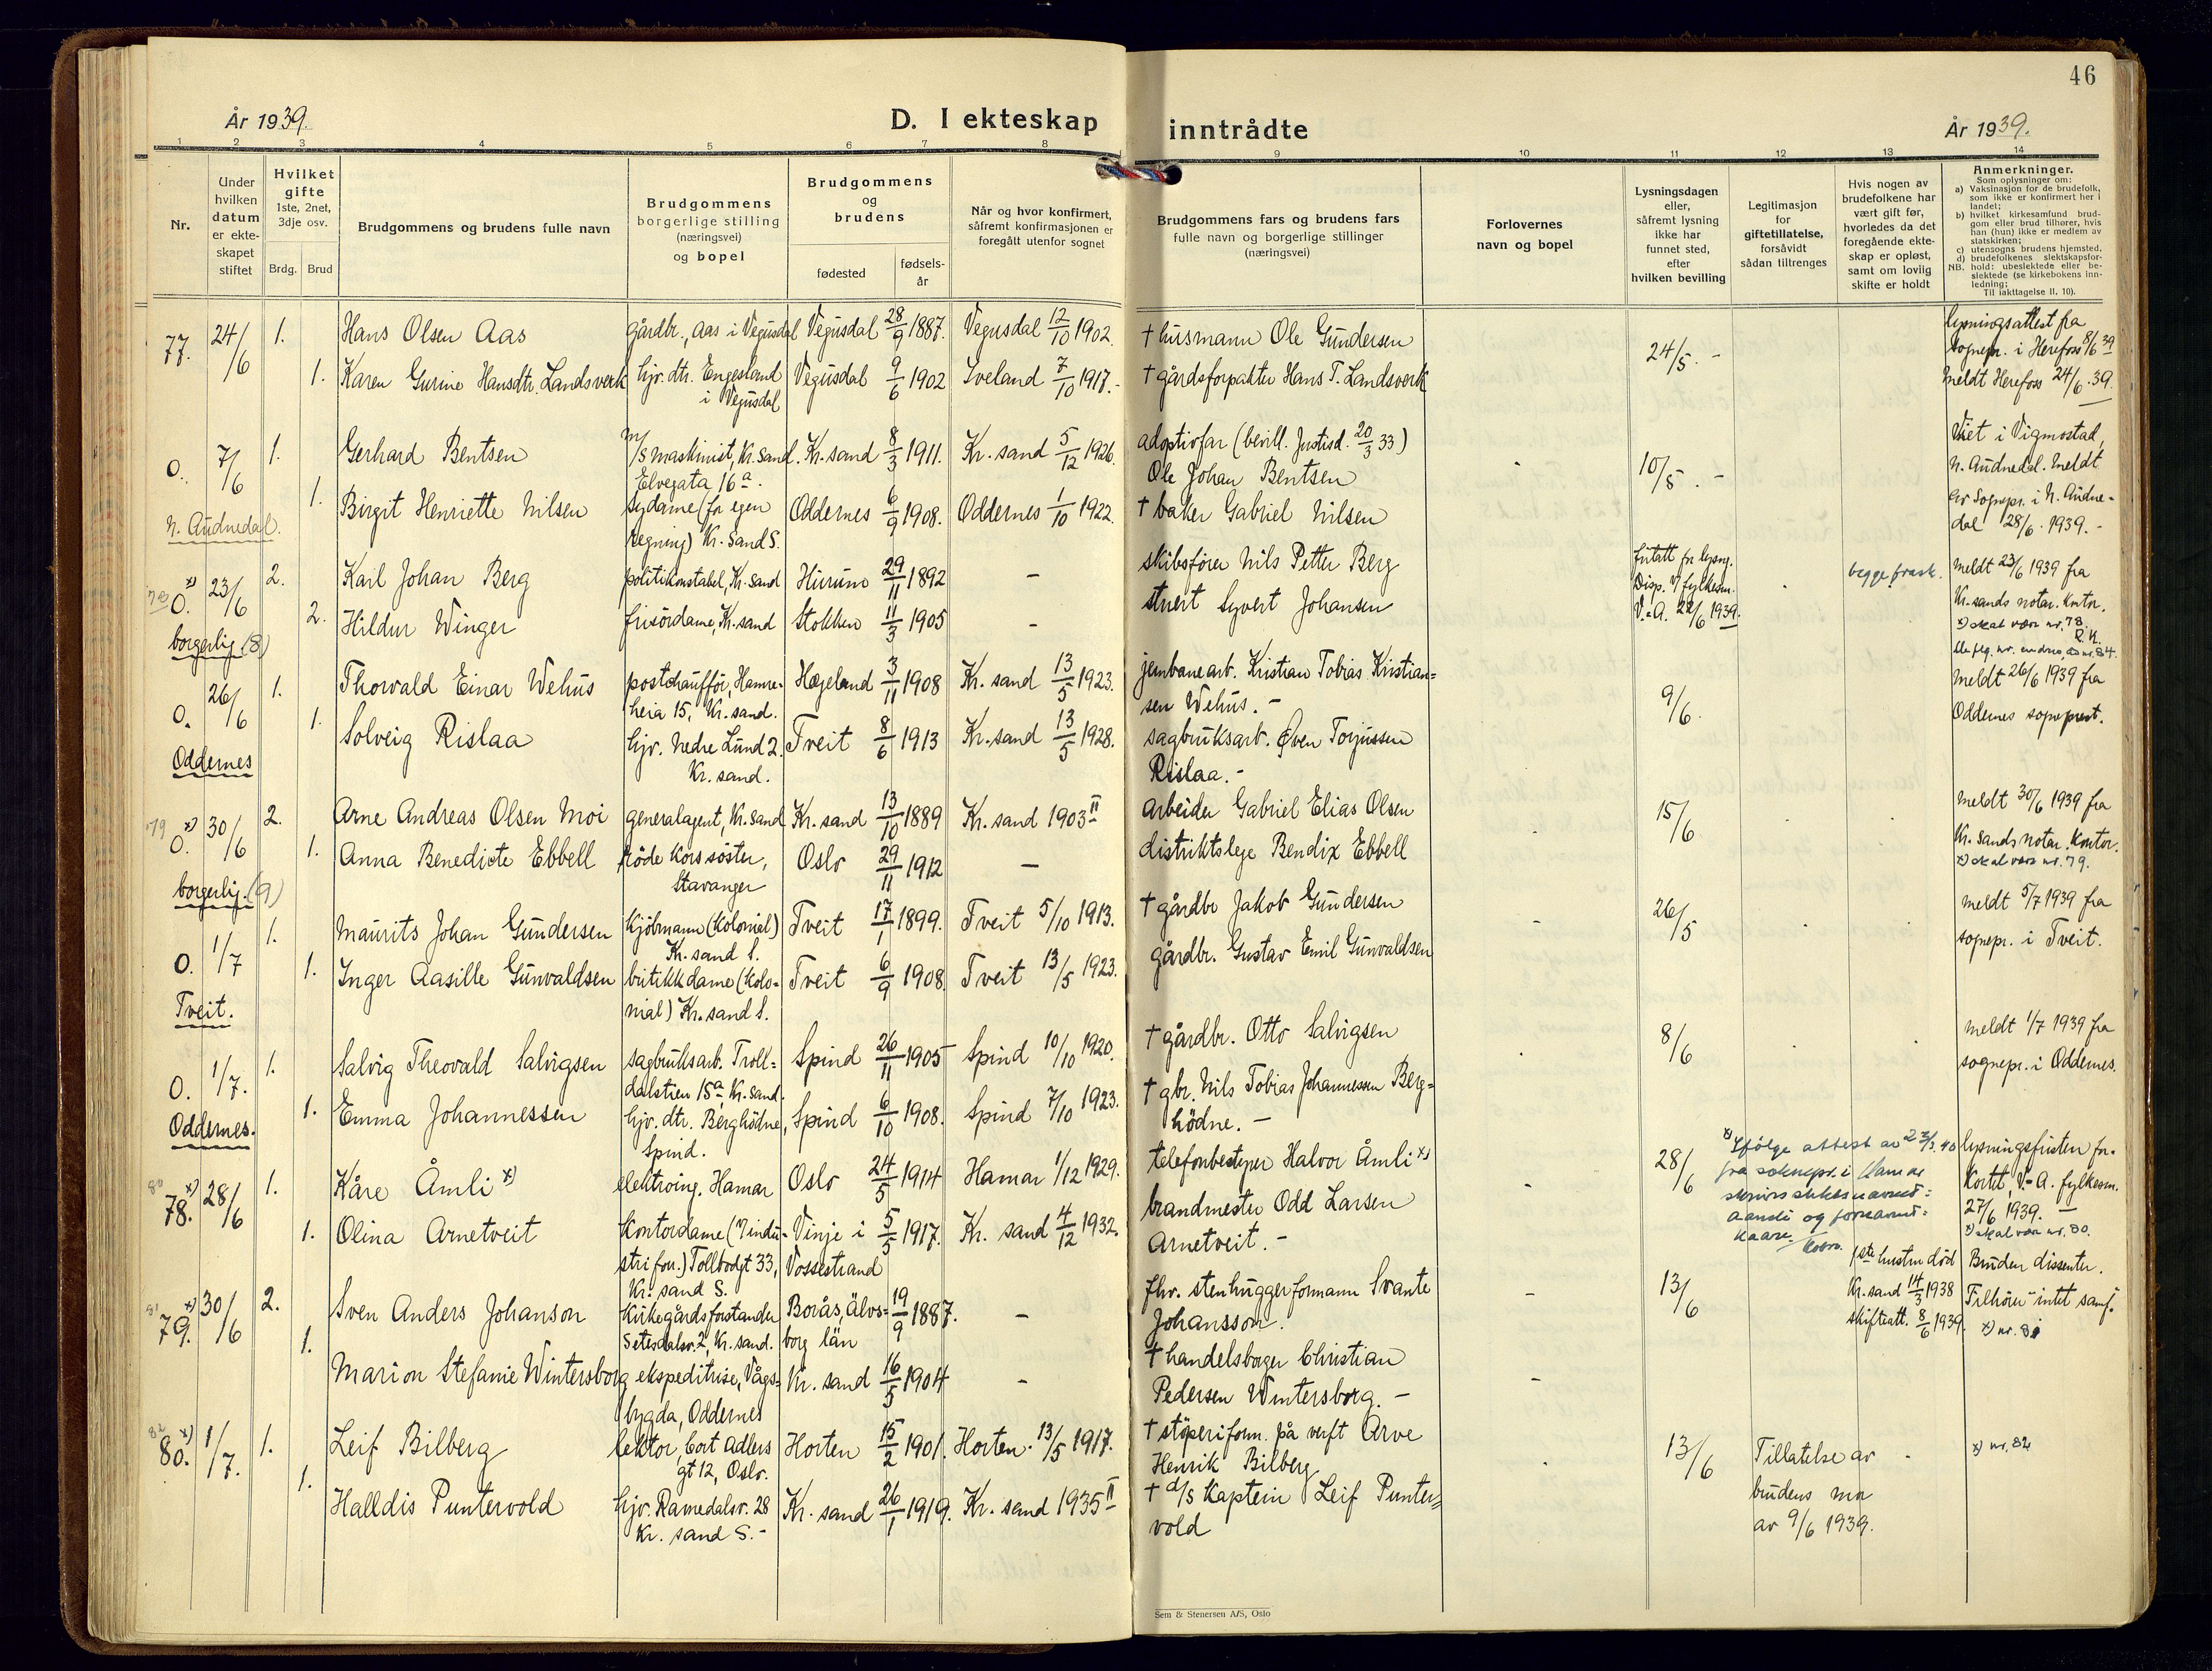 46
År 1939.
D. I ekteskap inntrådte
År 1939.
1 2 3 4 5 6 7 8 9 10 11 12 13 14
Nr.
Under hvilken datum er ekteskapet stiftet
Hvilket gifte 1ste, 2net, 3dje osv.
Brdg. Brud
Brudgommens og brudens fulle navn
Brudgommens borgerlige stilling (næringsvei) og bopel
Brudgommens og brudens
fødested
fødselsår
Når og hvor konfirmert, såfremt konfirmasjonen er foregått utenfor sognet
Brudgommens fars og brudens fars fulle navn og borgerlige stillinger (næringsvei)
Forlovernes navn og bopel
Lysningsdagen eller, såfremt lysning ikke har funnet sted, efter hvilken bevilling
Legitimasjon for giftetillatelse, forsåvidt sådan tiltrenges
Hvis nogen av brudefolkene har vært gift før, hvorledes da det foregående ekteskap er opløst, samt om lovlig skifte er holdt
Anmerkninger.
Som oplysninger om:
a) Vaksinasjon for de brudefolk, som ikke er konfirmert her i landet;
b) hvilket kirkesamfund brudgom eller brud tilhører, hvis han (hun) ikke er medlem av statskirken;
c) utensogns brudens hjemsted.
d) brudefolkenes slektskapsforhold: ubeslektede eller beslektede (se kirkebokens innledning;
NB. Til iakttagelse II. 10).
77. 24/6 1. Hans Olsen Aas gårdbr., Aas i Vegusdal Vegusdal 28/9 1887. Vegusdal 12/10 1902. † husmann Ole Gundersen 24/5. - lysningsattest fra
sognepr. i Herefoss 8/6 39
1. Karen Gurine Hansdtr. Landsverk hjv. dtr. Engesland Vegusdal 9/6 1902 Iveland 7/10 1917. † gårdsforpakter Hans T. Landsverk meldt Herefoss 24/6.39.
i Vegusdal
0. 7/6 1. Gerhard Bentsen m/s maskinist, Kr. sand. Kr. sand 8/3 1911. Kr. sand 5/12 1926. adoptivfar (bevill. Justisd. 20/3 33) 10/5. - Viet i Vigmostad,
Elvegata 16a. Ole Johan Bentsen N. Audnedal. Meldt
1. Birgit Henriette Nilsen sydame (for egen Oddernes 6/9 1908. Oddernes 1/10 1922. † baker Gabriel Nilsen av Sognepr. i N. Audne-
N. Audnedal. regning) Kr. Sand S. dal 28/6. 1939. -
78 x) 0. 23/6 2. Karl Johan Berg politikonstabel, Kr. sand Hurum 29/11 1892 - skibsförer Nils Petter Berg fritatt for lysng. begge frask. meldt 23/6 1939 fra
Disp. v/ fylkesm. Kr. sands notar. kntor.
2. Hildur Winger frisördame, Kr. sand Stokken 11/3 1905 - stuert Syvert Johansen V.-A. 22/6 1939. x) skal være nr. 78.
borgerlig (8) R.K.
0. 26/6 1. Thorvald Einar Wehus postchaufför, Hamre- Hægeland 3/11 1908 Kr. sand 13/5 1923. jernbanearb. Kristian Tobias Kristian- 9/6. meldt 26/6 1939 fra
heia 15, Kr. sand. sen Wehus. - Oddernes sogneprest.
1. Solveig Rislaa hjv. Nedre Lund 2. Tveit 8/6 1913 Kr. sand 13/5 1928. sagbruksarb. Öven Torjussen
Oddernes Kr. sand. Rislaa. -
79 x) 0. 30/6 2. Arne Andreas Olsen Moi generalagent, Kr. sand Kr. sand 13/10 1889 Kr. sand 1903 II arbeider Gabriel Elias Olsen 15/6 meldt 30/6 1939 fra
Kr. Sands notar. kontor.
1. Anna Benedicte Ebbell röde Kors söster, Oslo 29/11 1912 - distriktslege Bendix Ebbell x) skal være nr. 79.
borgerlig. (9) Stavanger
0. 1/7 1. Maurits Johan Gundersen kjöbmann (kolonial) Tveit 17/1 1899. Tveit 5/10 1913. † gårdbr Jakob Gundersen 26/5 meldt 5/7 1939 fra
Kr. sand S. sognepr. i Tveit.
1. Inger Aasille Gunvaldsen butikkdame (kolo- Tveit 6/9 1908. Tveit 13/5 1923. gårdbr. Gustav Emil Gunvaldsen
Tveit. nial) Kr. sand S.
0. 1/7. 1. Salvig Theovald Salvigsen sagbruksarb. Troll- Spind 26/11 1905 Spind 10/10 1920. † gårdbr. Otto Salvigsen 8/6 meldt 1/7 1939 fra
dalstien 15a, Kr. sand. sognepr. i Oddernes.
1. Emma Johannessen hjv. dtr. Berghödne, Spind 6/10 1908. Spind 7/10 1923. † gbr. Nils Tobias Johannessen Berg-
Oddernes. Spind. hödne. -
80 x) 78. 28/6 1. Kåre Åmli x) elektroing. Hamar Oslo 24/5 1914 Hamar 1/12 1929. telefonbestyrer Halvor Åmli x) 28/6 x) Ifölge attest av 23/3.40 lysningsfristen for-
fra sognepr. i Hamar kortet, V.-A. fylkesm.
27/6 1939. -
og fornavnet: x) skal være nr. 80.
Kaare.
1. Olina Arnetveit kontordame (v/indu- Vinje i 5/5 1917. Kr. sand 4/12 1932. brandmester Odd Larsen
strifor.) Tollbodgt 33, Vossestrand Arnetveit. -
Kr. sand S.
81 x) 79. 30/6 2. Sven Anders Johanson kirkegårdsforstander Borås, Älvs- 19/9 1887. - fhv. stenhuggerformann Svante 13/6 1ste hustru död Bruden dissenter.
Setesdalsv. 2, Kr. sand. borg län Johansson. Kr. sand 14/3 1938 Tilhörer intet samf.
skifteatt. 8/6 1939. x) nr. 81
1. Marion Stefanie Wintersborg ekspeditrise, Vågs- Kr. sand 16/5 1904 - † handelsborger Christian
bygda, Oddernes Pedersen Wintersborg. -
82 x) 80. 1/7. 1. Leif Bilberg lektor, Cort Adlers Horten 15/2 1901. Horten. 13/5 1917. † stöperiform. på verft Arve 13/6 Tillatelse av x) nr. 82
gt 12, Oslo. Henrik Bilberg brudens mor
1. Halldis Puntervold hjv. Ramedalsv. 28 Kr. sand 26/1 1919. Kr. sand 1935 II † d/s kaptein Leif Punter- av 9/6 1939.
Kr. sand S. - vold
Sem & Stenersen A/S, Oslo